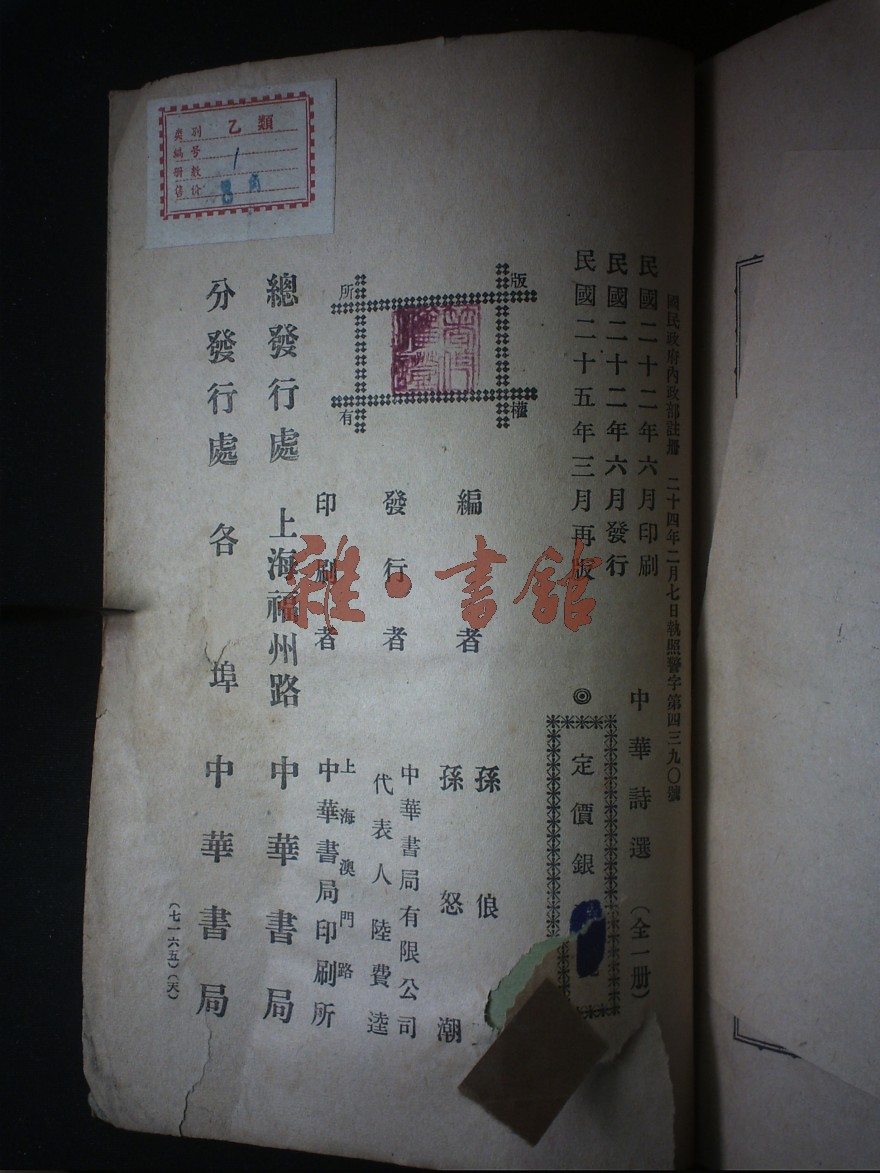 國民政府內政部註册　二十四年二月七日執照警字第四三九〇號
民國二十二年六月印刷
民國二十二年六月發行
民國二十五年三月再版
中華詩選（全一册）
◎
定價銀
版權所有
編者
孫俍
孫怒潮
發行者
中華書局有限公司
代表人陸費逵
印刷者
上海澳門路
中華書局印刷所
總發行處　上海福州路　中華書局
分發行處　各埠　中華書局
（七一六五）（天）
类别 乙類
編号 1
册数
售价 角
雜·書館